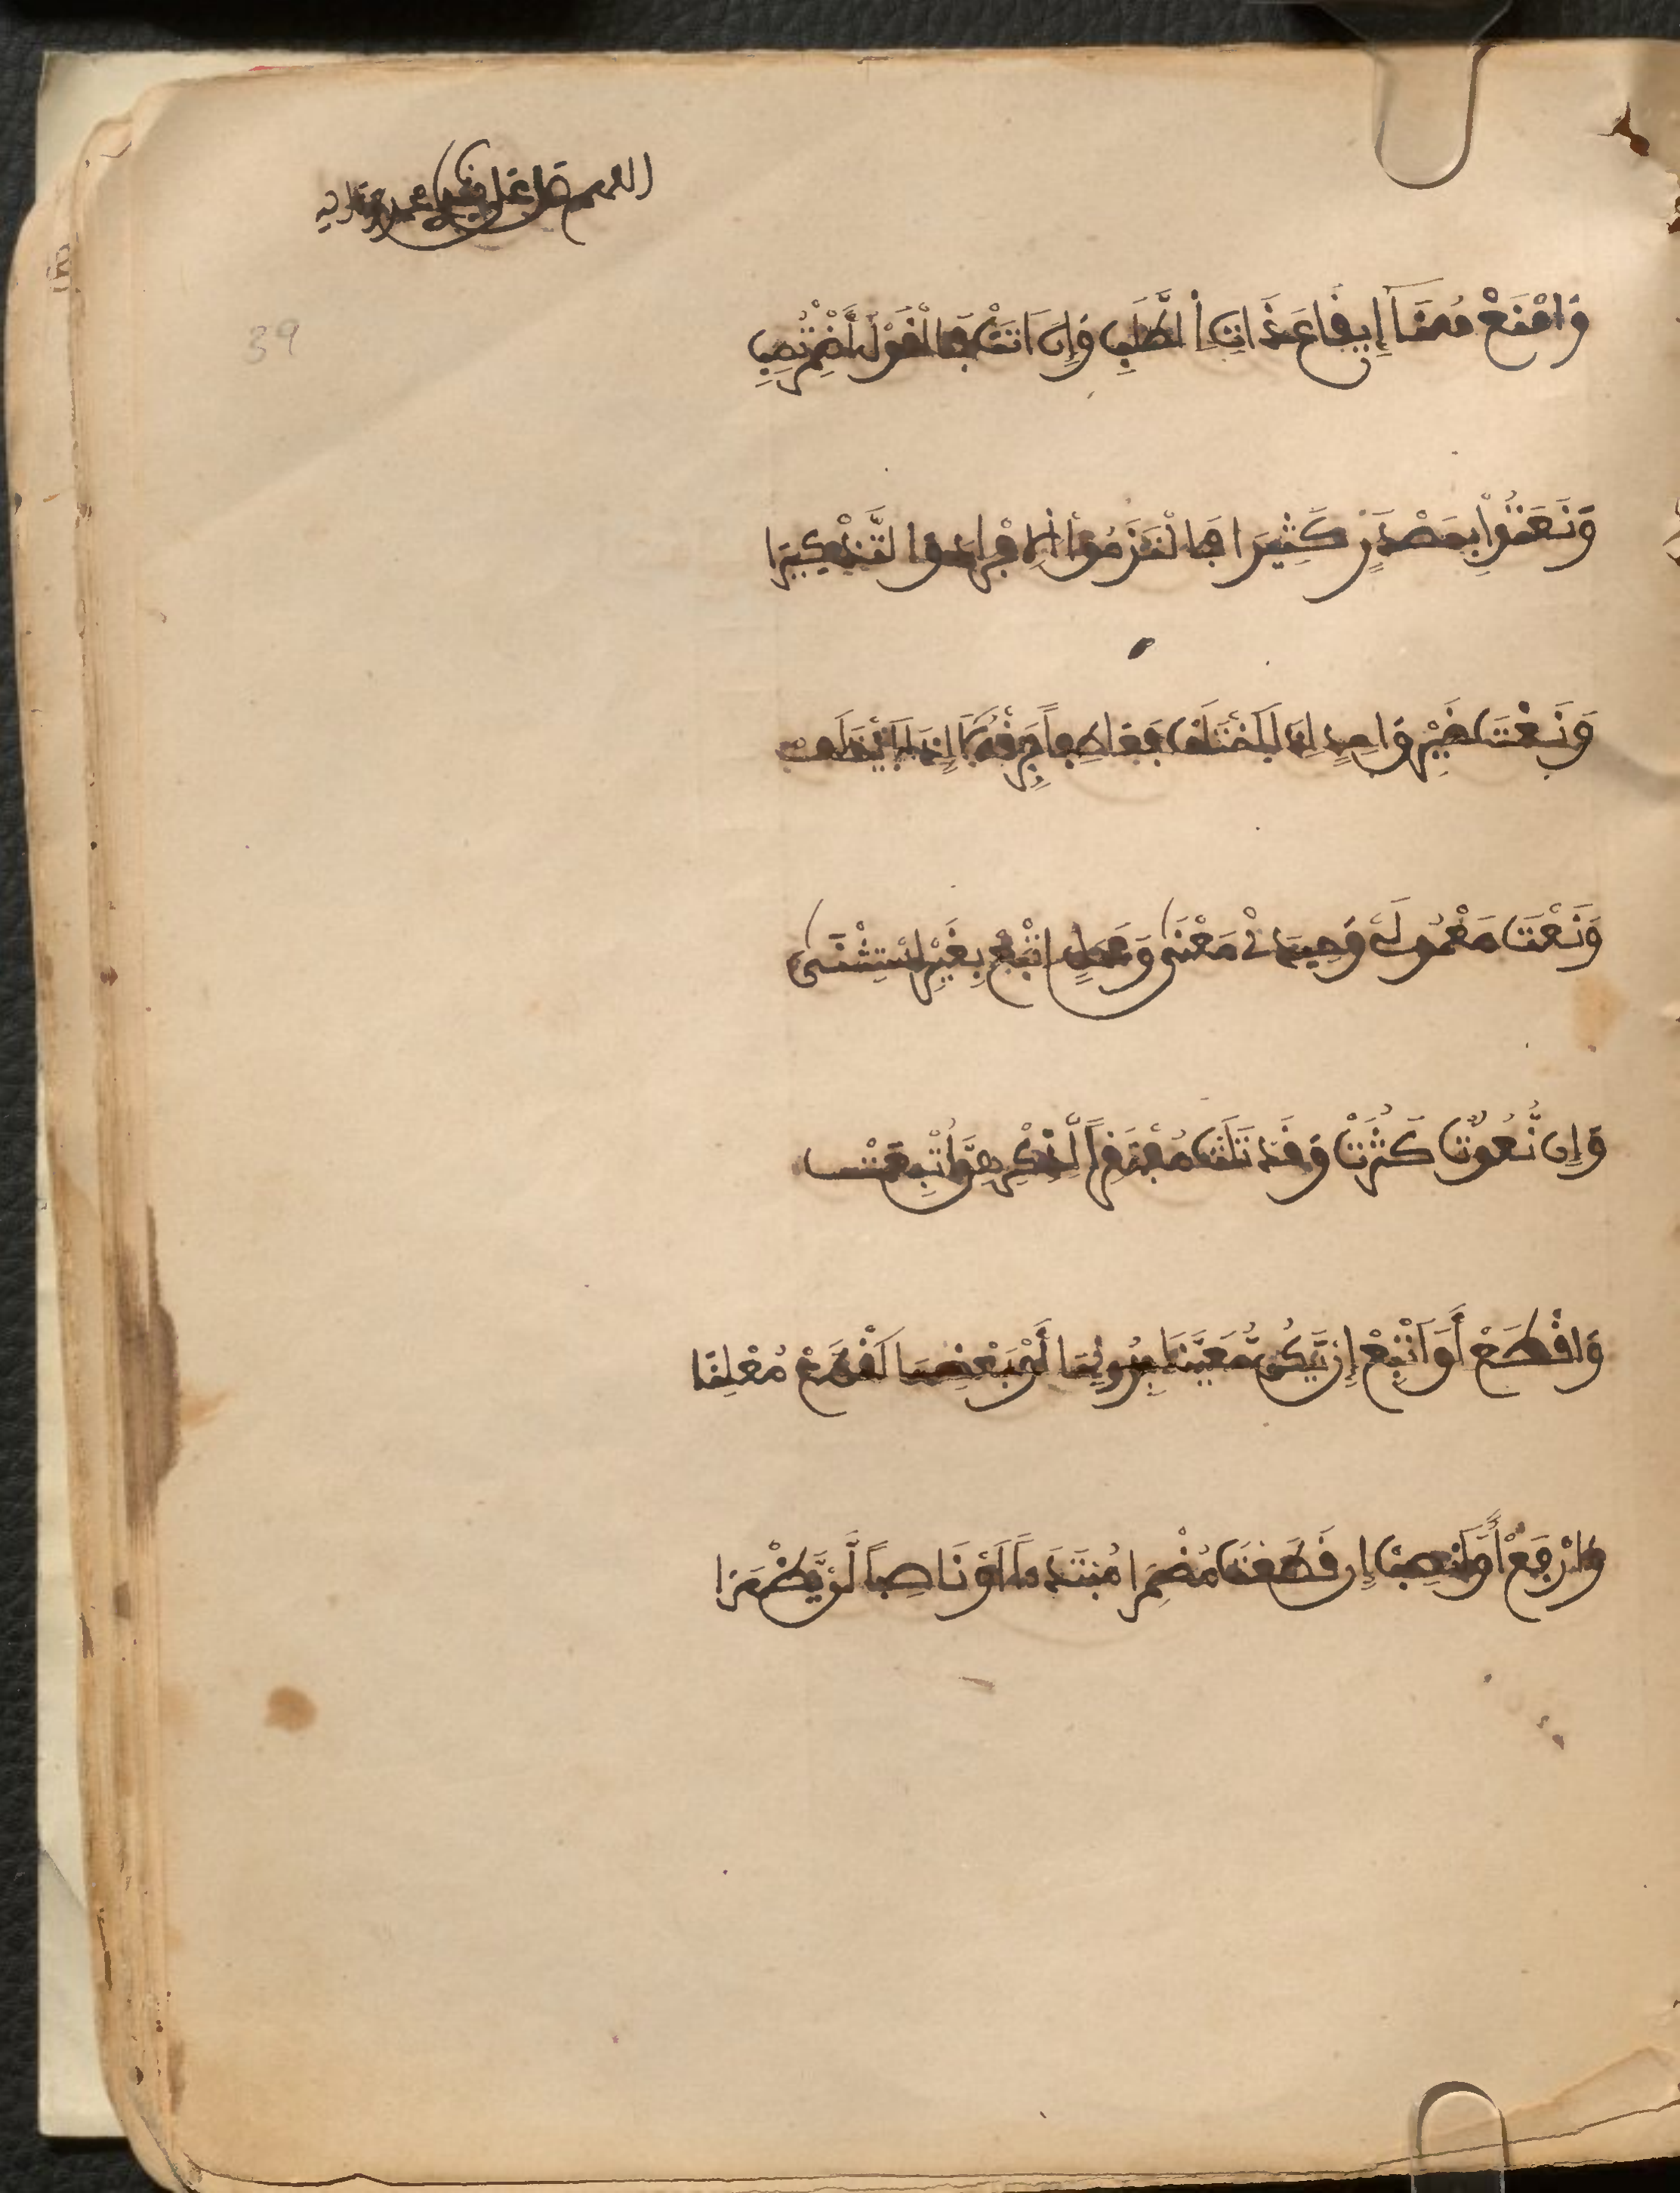 اللهم صل على سيدنا محمد وءاله
39
وَامْنَعْ هُنَا إِيقَاعَ ذَاتِ الطَّلَبِ وَإِنْ اَتَتْ فَالْقَوْلَ أَضْمِرْ تُصِبِ
وَنَعَتُواْ بِمَصْدَرٍ كَثِيرَا فَالْتَزَمُواْ الِافْرَادَ وَالتَّذْكِيرَا
وَنَعْتَ غَيْرِ وَاحِدٍ إِذَا اَخْتَلَفْ فَعَاطِفاً فَرِّقْهُ لَا إِذَا اَيْتَلَفْ
وَنَعْتَ مَعْمُولَيْ وَحِيدَيْ مَعْنَى وَعَمَلٍ اَتْبِعْ بِغَيْرِ اسْتِثْنَى
وَإِن نُّعُوتٌ كَثُرَتْ وَقَدْ تَلَتْ مُفْتَقِراً لِّذِكْرِهِنَّ أُتْبِعَتْ
وَاقْطَعْ أَوَ اَتْبِعْ إِنْ يَّكُن مُّعَيَّنَا بِدُونِهَا أَوْ بَعْضِهَا اَقْطَعْ مُعْلِنَا
وَارْفَعْ أَوِ انْصِبْ إِن قَطَعْتَ مُضْمِرَا مُبْتَدَءاً اَوْ نَاصِباً لَّنْ يَّظْهَرَا